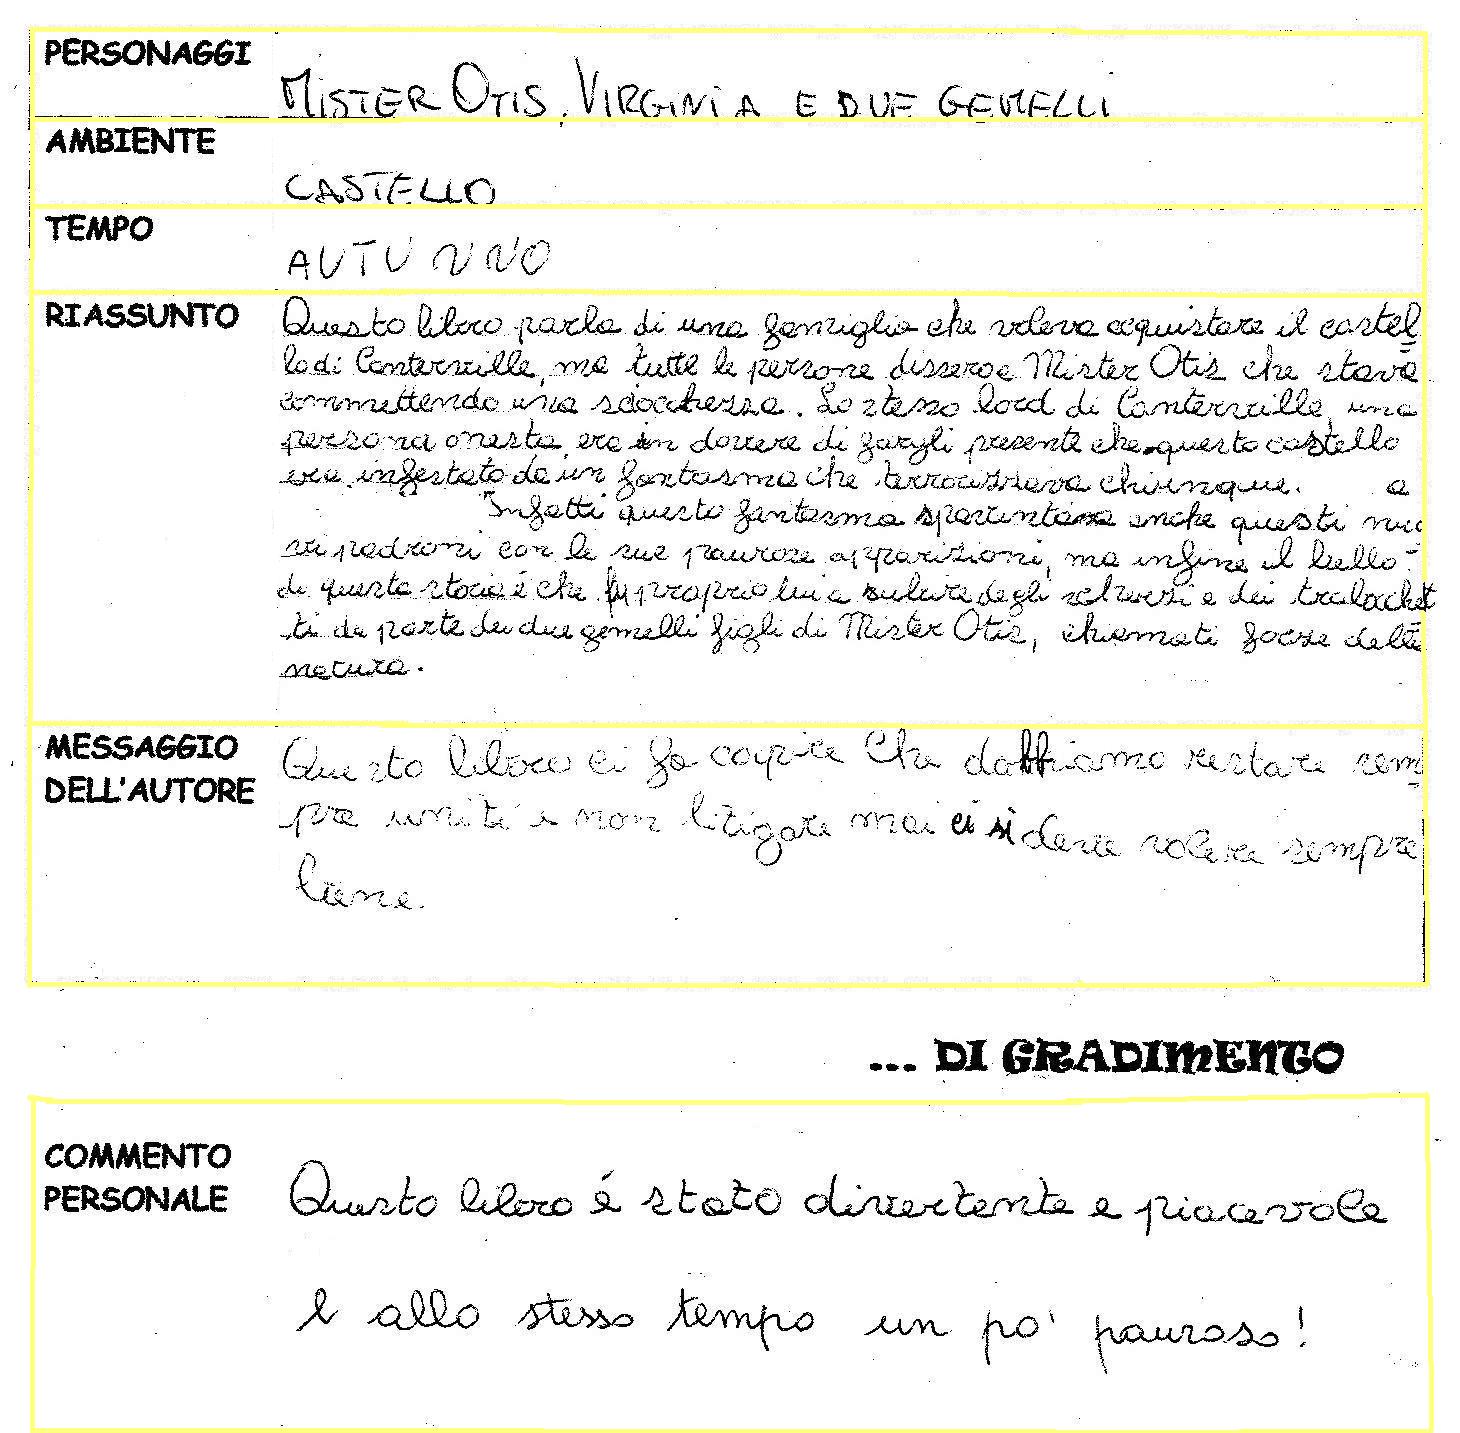 PERSONAGGI
MISTER OTIS, VIRGINIA E DUE GEMELLI
AMBIENTE
CASTELLO
TEMPO
AUTUNNO
RIASSUNTO
Questo libro parla di una famiglia che voleva acquistare il castel
lo di Canterville, ma tutte le persone dissero a Mister Otis che stava
commettendo una sciocchezza. Lo stesso lord di Canterville, una
persona onesta, era in dovere di fargli presente che questo castello
era infestato da un fantasma che terrorizzava chiunque. a
Infatti questo fantasma spaventava anche questi nuo
vi padroni con le sue paurose apparizioni, ma infine il bello
di questa storia é che fu proprio lui a subire degli scherzi e dei trabocchet
ti da parte dei due gemelli figli di Mister Otis, chiamati forze della
natura.
MESSAGGIO
DELL'AUTORE
Questo libro ci fa capire che dobbiamo restare sem
pre uniti e non litigare mai ci si deve volere sempre
bene.
... DI GRADIMENTO
COMMENTO
PERSONALE
Questo libro é stato divertente e piacevole
e allo stesso tempo un po' pauroso!